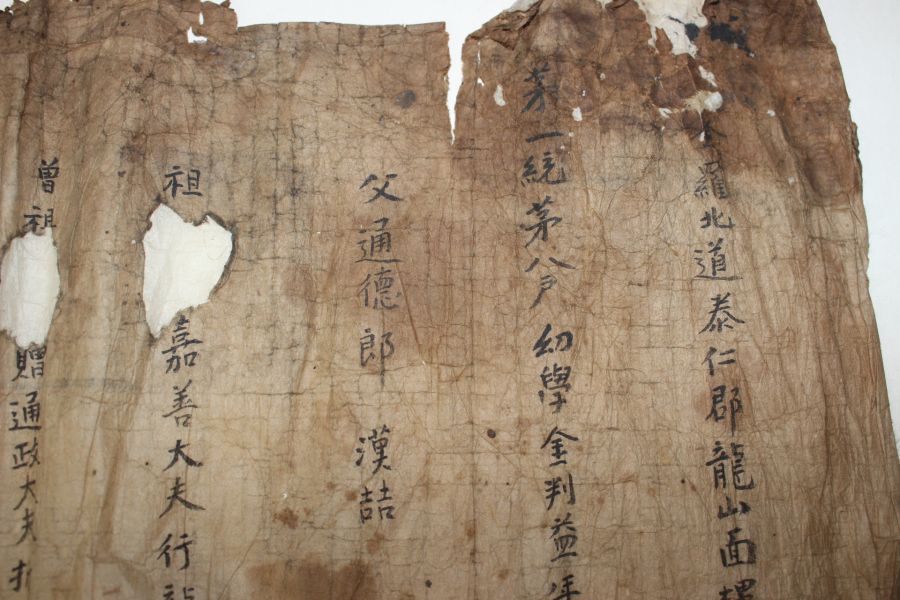 全羅北道泰仁郡龍山面
茅一統茅八戶幼學金判益年
父通德郎 漢喆
祖 嘉善大夫行龍
曾祖 贈通政大夫